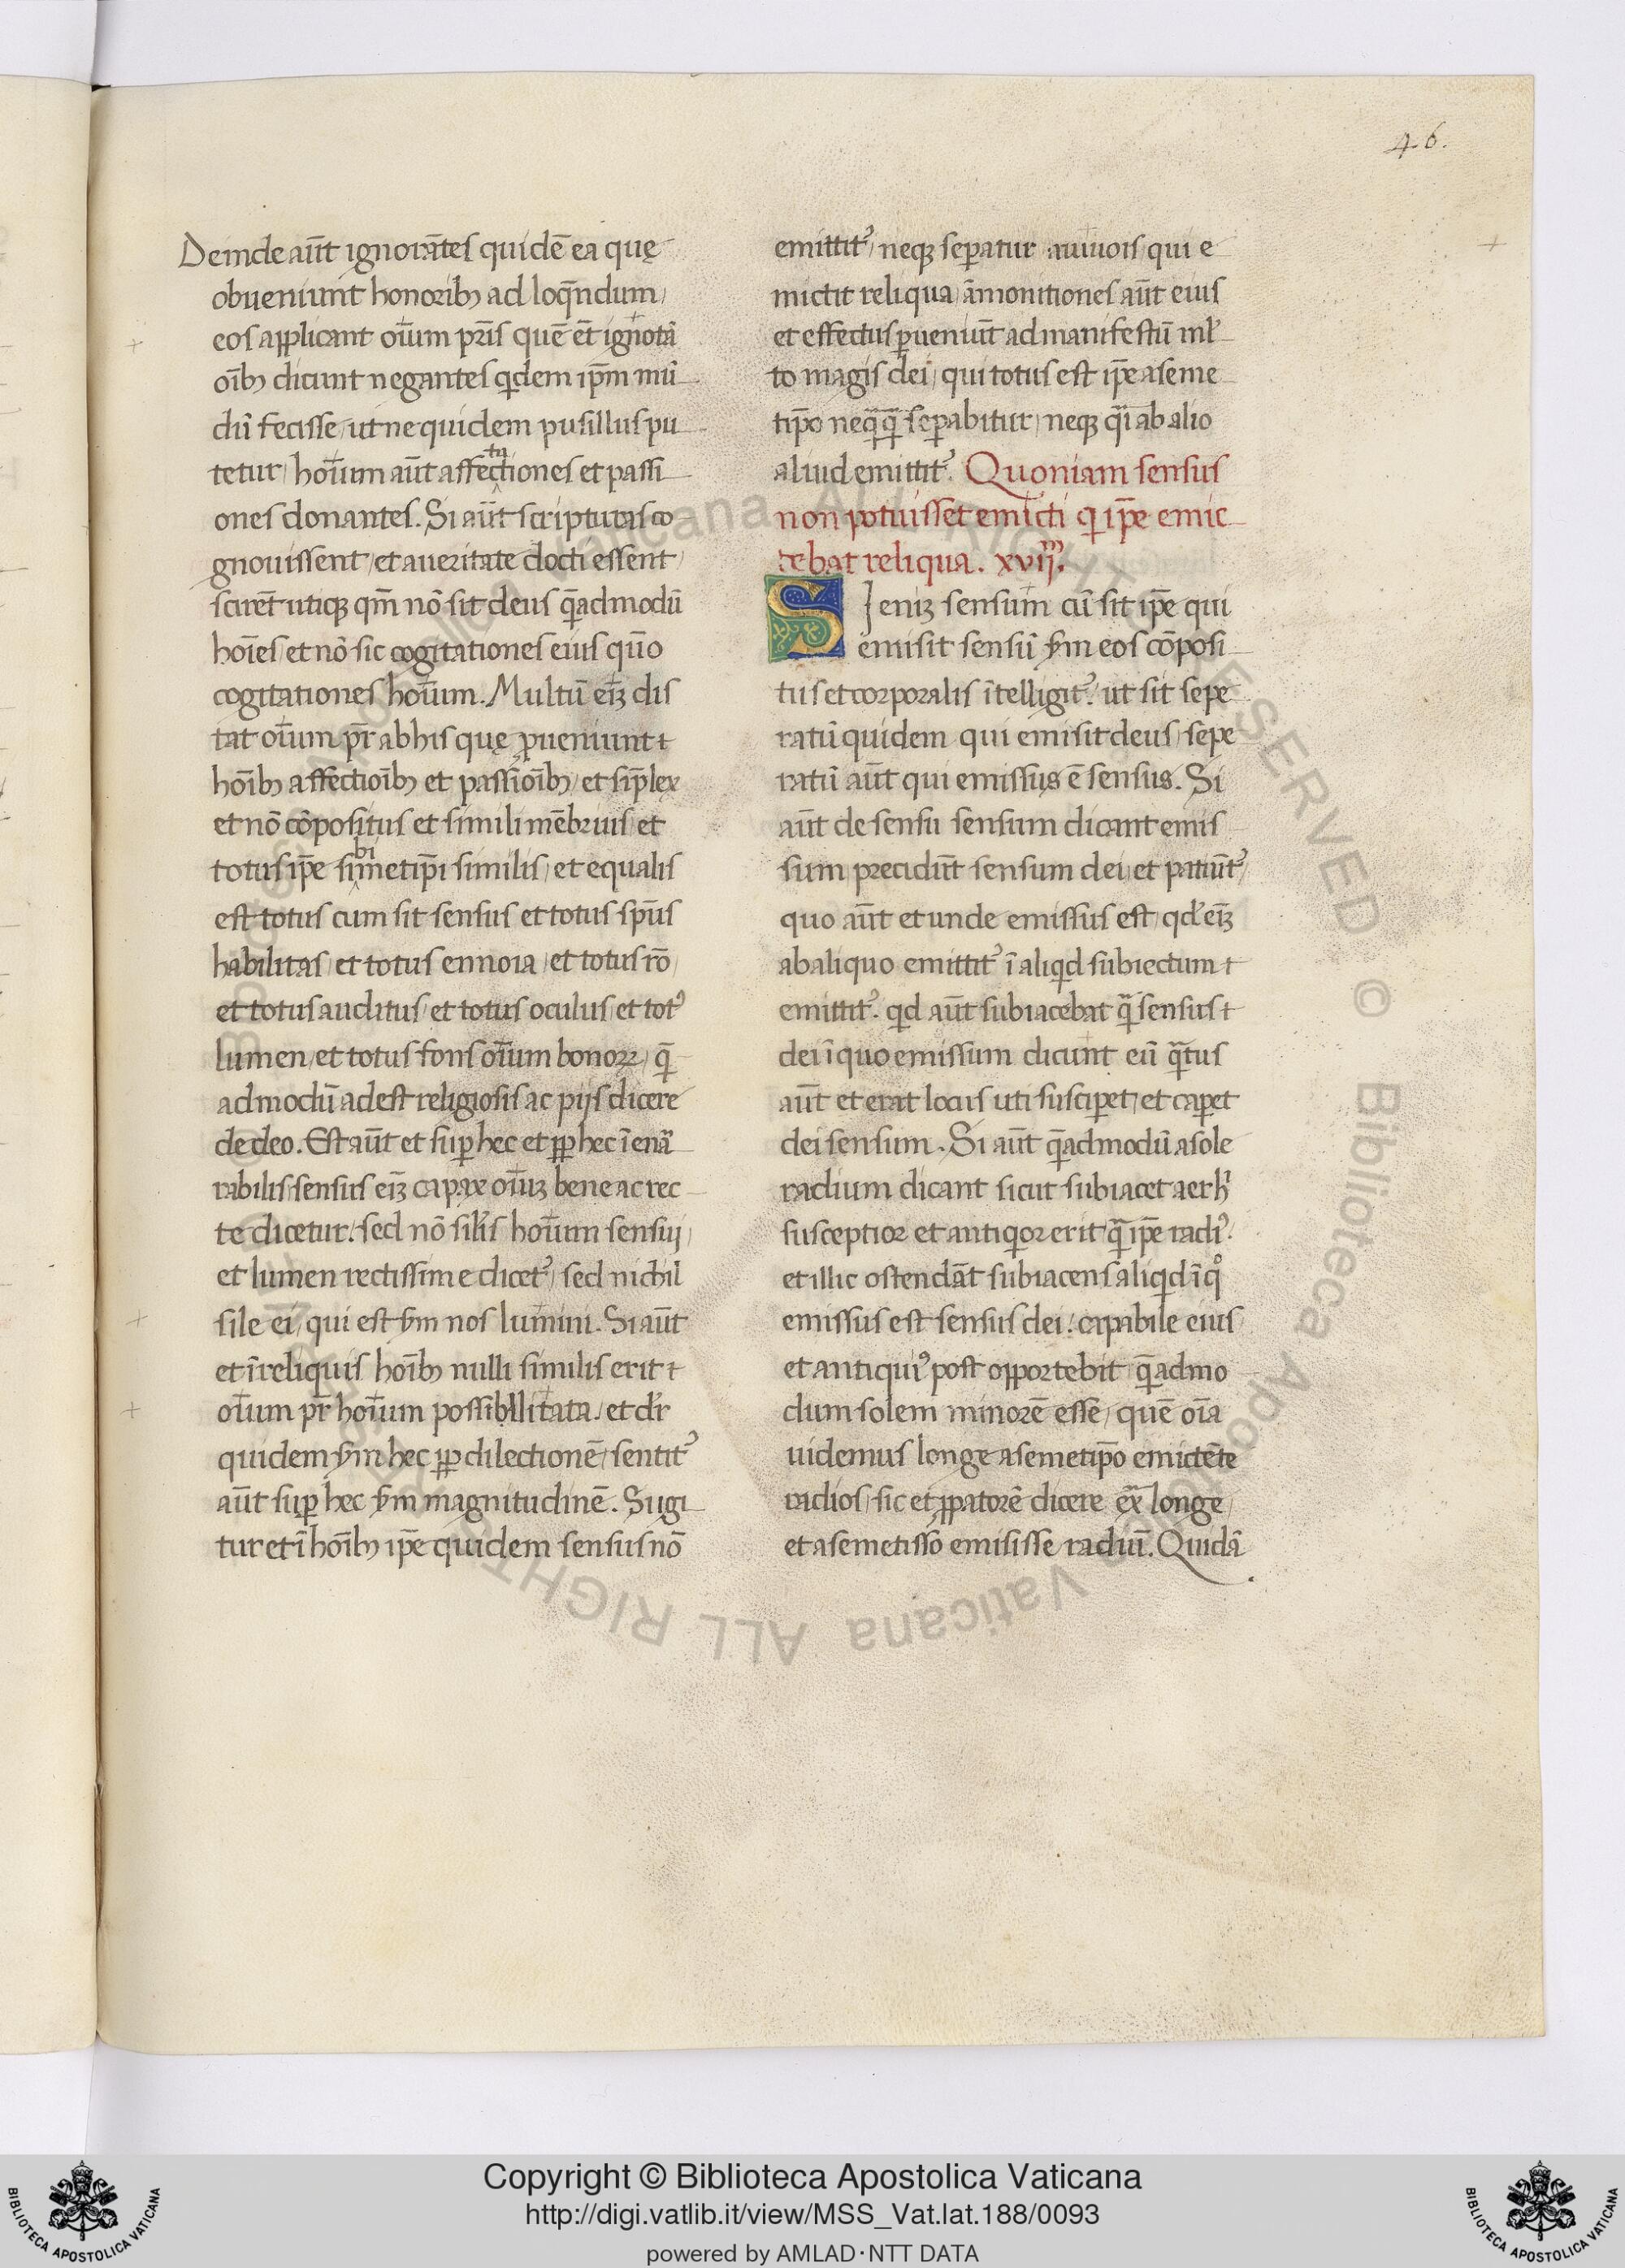 46.
Deinde aūt ignorātes quidē ea quę
obueniunt honorib; ad loq̄ndum,
eos applicant oīum pr̄is quē ēt ignotā
oīb; dicunt negantes qdem ip̄m mū
dū fecisse, ut ne quidem pusillus pu
tetur, hoīum aūt affectiones et passi
ta
ones donantes. Si aūt scripturas co
gnouissent, et a ueritate docti essent,
scirēt utiqꝫ qm̄ nō sit deus q̄admodū
hoīes, et nō sic cogitationes eius quō
cogitationes hoīum. Multū eīꝫ dis
tat oīum pr̄ ab his quę ꝓueniunt
hoīb; affectioīb; et passioīb;, et sīplex
et nō cōpositus et simili mēbrius, et
totus ip̄e simetip̄i similis, et equalis
bi
est totus cum sit sensus et totus sp̄us
habilitas, et totus ennoia, et totus rō,
et totus auditus, et totus oculus, et totꝰ
lumen, et totus fons oīum bonoꝝ, q̄
admodū adest religiosis ac pijs dicere
de deo. Est aūt et suꝑ hec et ꝓp hec īenā
rabilis, sensus eīꝫ capax oīuꝫ bene ac rec
te dicetur, sed nō sil̄is hoīum sensui,
et lumen rectissime dicetᷣ, sed nichil
sile ei, qui est s̄m nos lumini. Si aūt
et ī reliquis hoīb; nulli similis erit
oīum pr̄ hoīum possibillitata, et dr̄
quidem s̄m hec ꝓp dilectionē, sentitᷣ
aūt suꝑ hec s̄m magnitudinē. Sugi
tur et ī hoīb; ip̄e quidem sensus nō
emittitᷣ, neqꝫ seꝑatur a uiuois qui e
mictit reliqua, āmonitiones aūt eius
et effectus ꝑueniūt ad manifestū ml̄
to magis dei, qui totus est ip̄e a seme
tip̄o neq̄q̄ seꝑabitur, neqꝫ q̄i ab alio
aliud emittitᷣ. Quoniam sensus
non potuisset emicti q ip̄e emic
tebat reliqua. xvij.
SIeniꝫ sensum cū sit ip̄e qui
emisit sensū s̄m eos cōposi
tus et corporalis ītelligitᷣ, ut sit sepe
ratū quidem qui emisit deus, sepe
ratū aūt qui emissus ē sensus. Si
aūt de sensu sensum dicant emis
sum, precidūt sensum dei, et patiūtᷣ,
quo aūt et unde emissus est, qd̄ eīꝫ
ab aliquo emittitᷣ ī aliqd subiectum
emittitᷣ. qd aūt subiacebat q̄ sensus
dei ī quo emissum dicunt eū q̄tus
aūt et erat locus uti susciꝑet, et caꝑet
dei sensum. Si aūt q̄admodū a sole
radium dicant sicut subiacet aer h̄
susceptior et antiqor erit q̄ ip̄e radiꝰ.
et illic ostendāt subiacens aliqd ī qͦ
emissus est sensus dei, capabile eius
et antiquiꝰ post opportebit q̄admo
dum solem minorē essē, quē oīa
uidemus longe a semetip̄o emictēte
radios, sic et ꝓpatorē dicere ex̄ longe,
et a semetisso emisisse radiū. Quidā
Copyright © Biblioteca Apostolica Vaticana
http://digi.vatlib.it/view/MSS_Vat.lat.188/0093
powered by AMLAD·NTT DATA